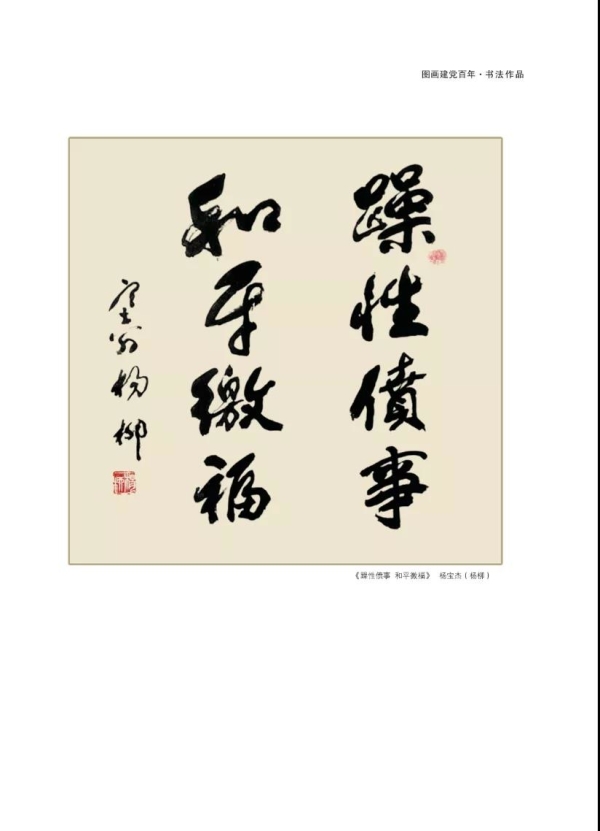 图画建党百年·书法作品
躁性僨事
和平繳福
塞外杨柳
《躁性偾事 和平徼福》 杨宝杰（杨柳）